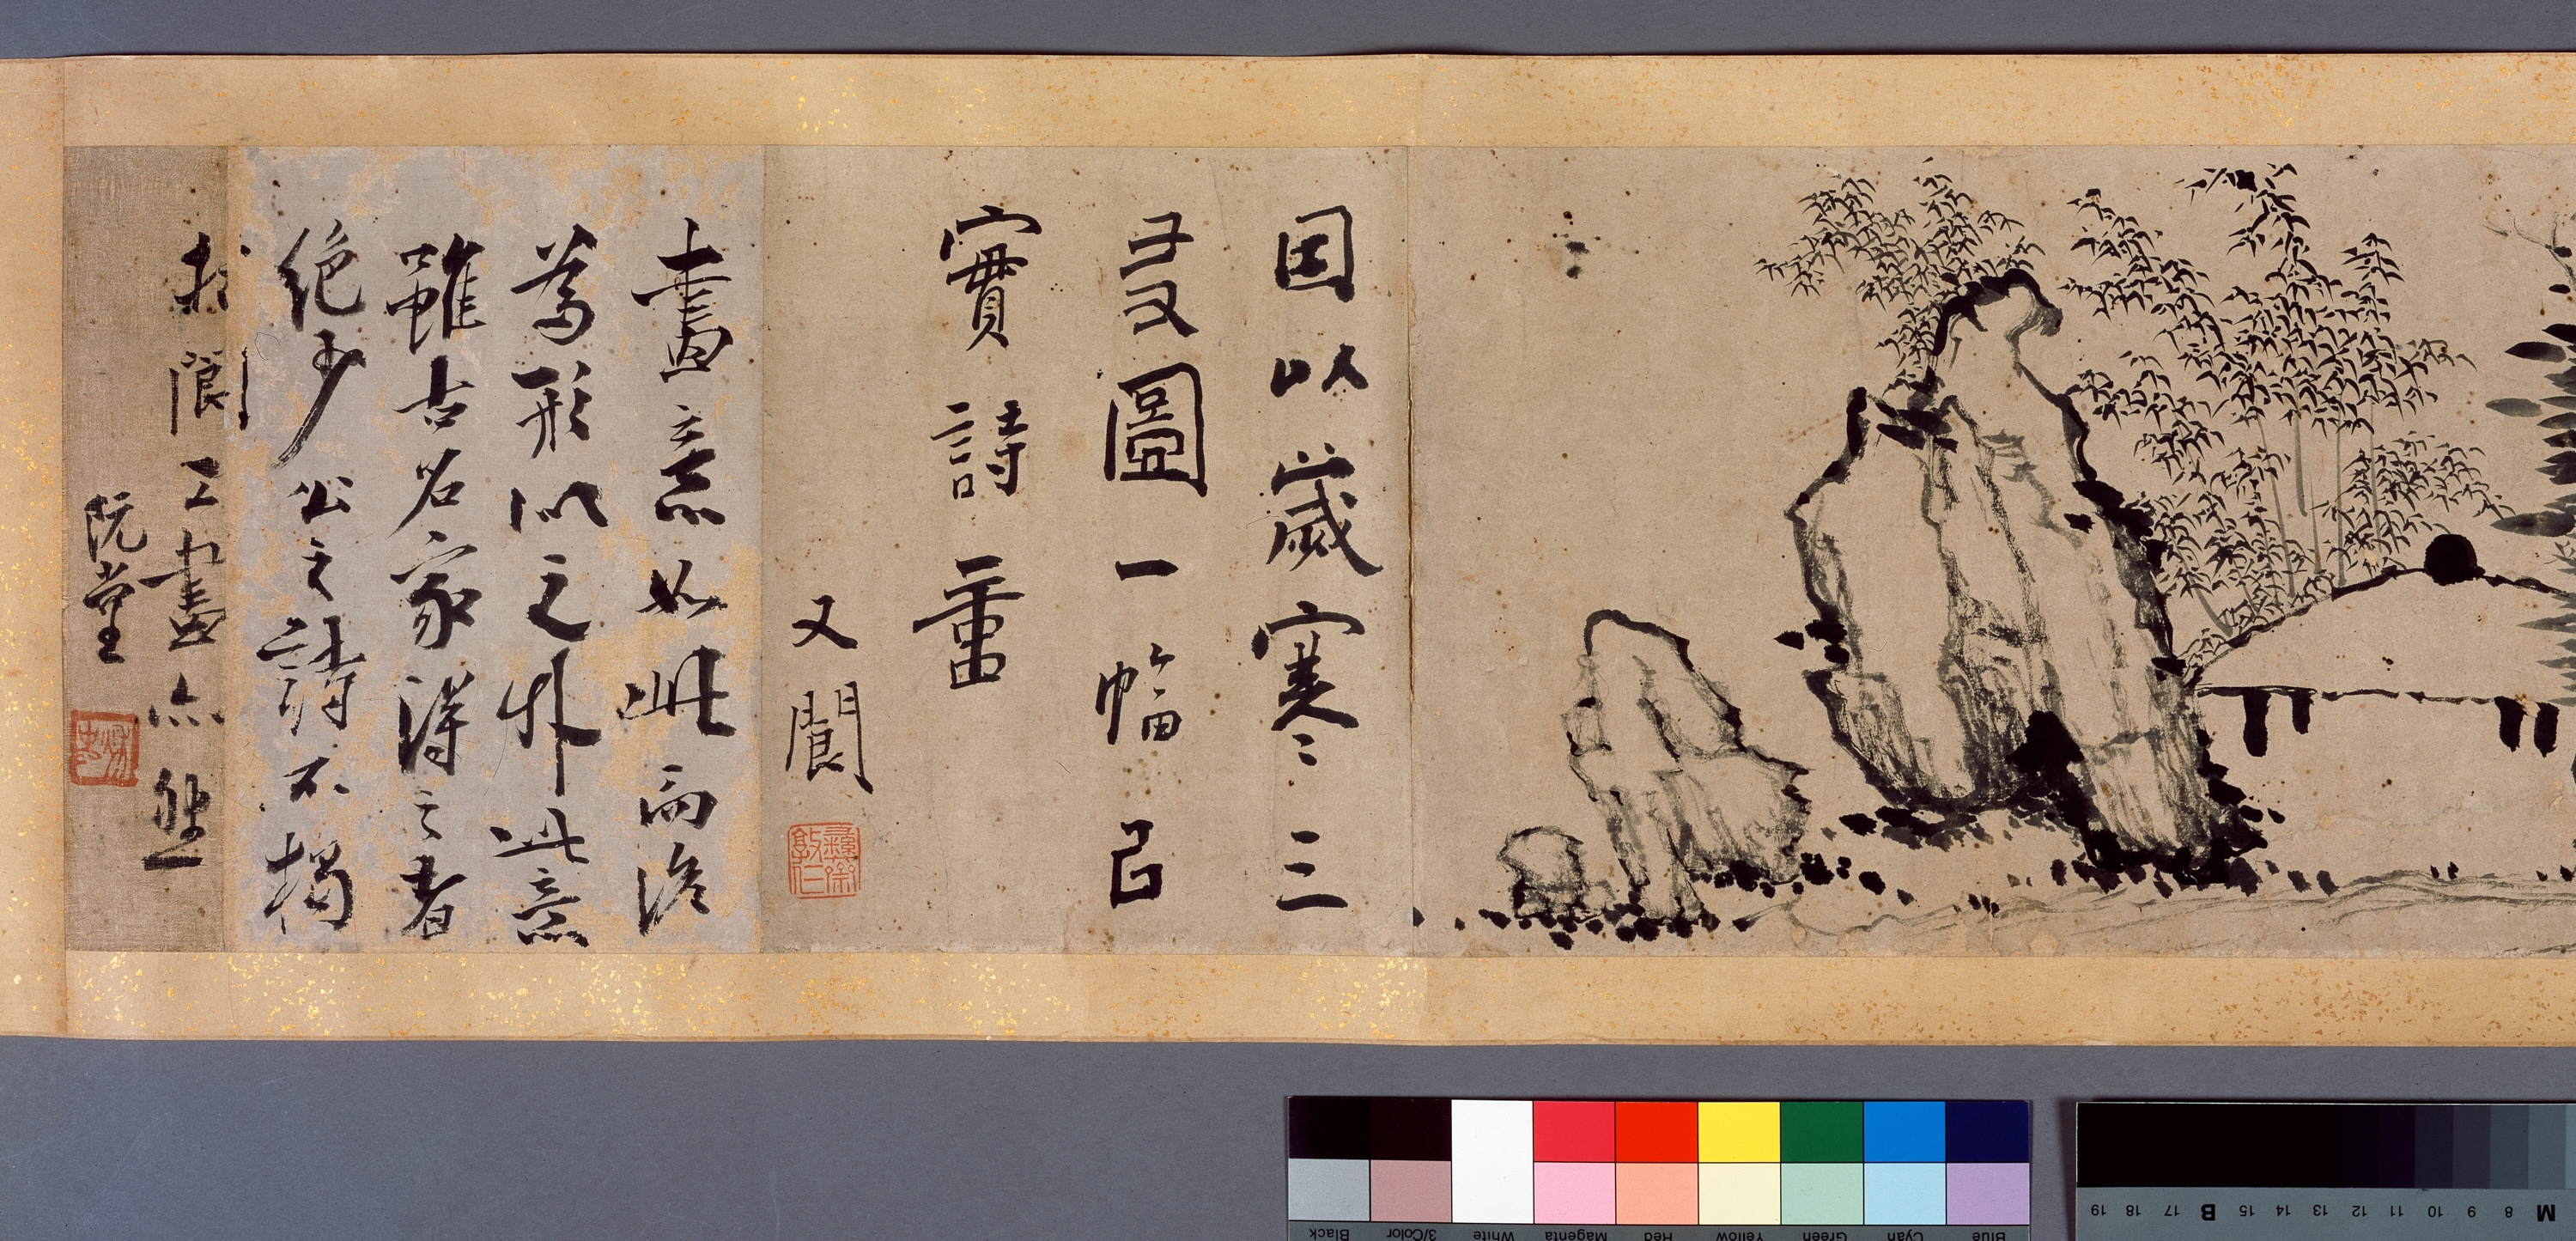 因以歲寒三
㕛圖一幅㠯
實詩畫
又閬
畫意如此而後
為形似之外此意
雖古名家得之者
絕少公之詩不獨
於閬工畫亦然
阮堂
秋史
Blue Cyan Green Yellow Red Magenta White 3/Color Black
M 8 9 10 11 12 13 14 15 B 17 18 19